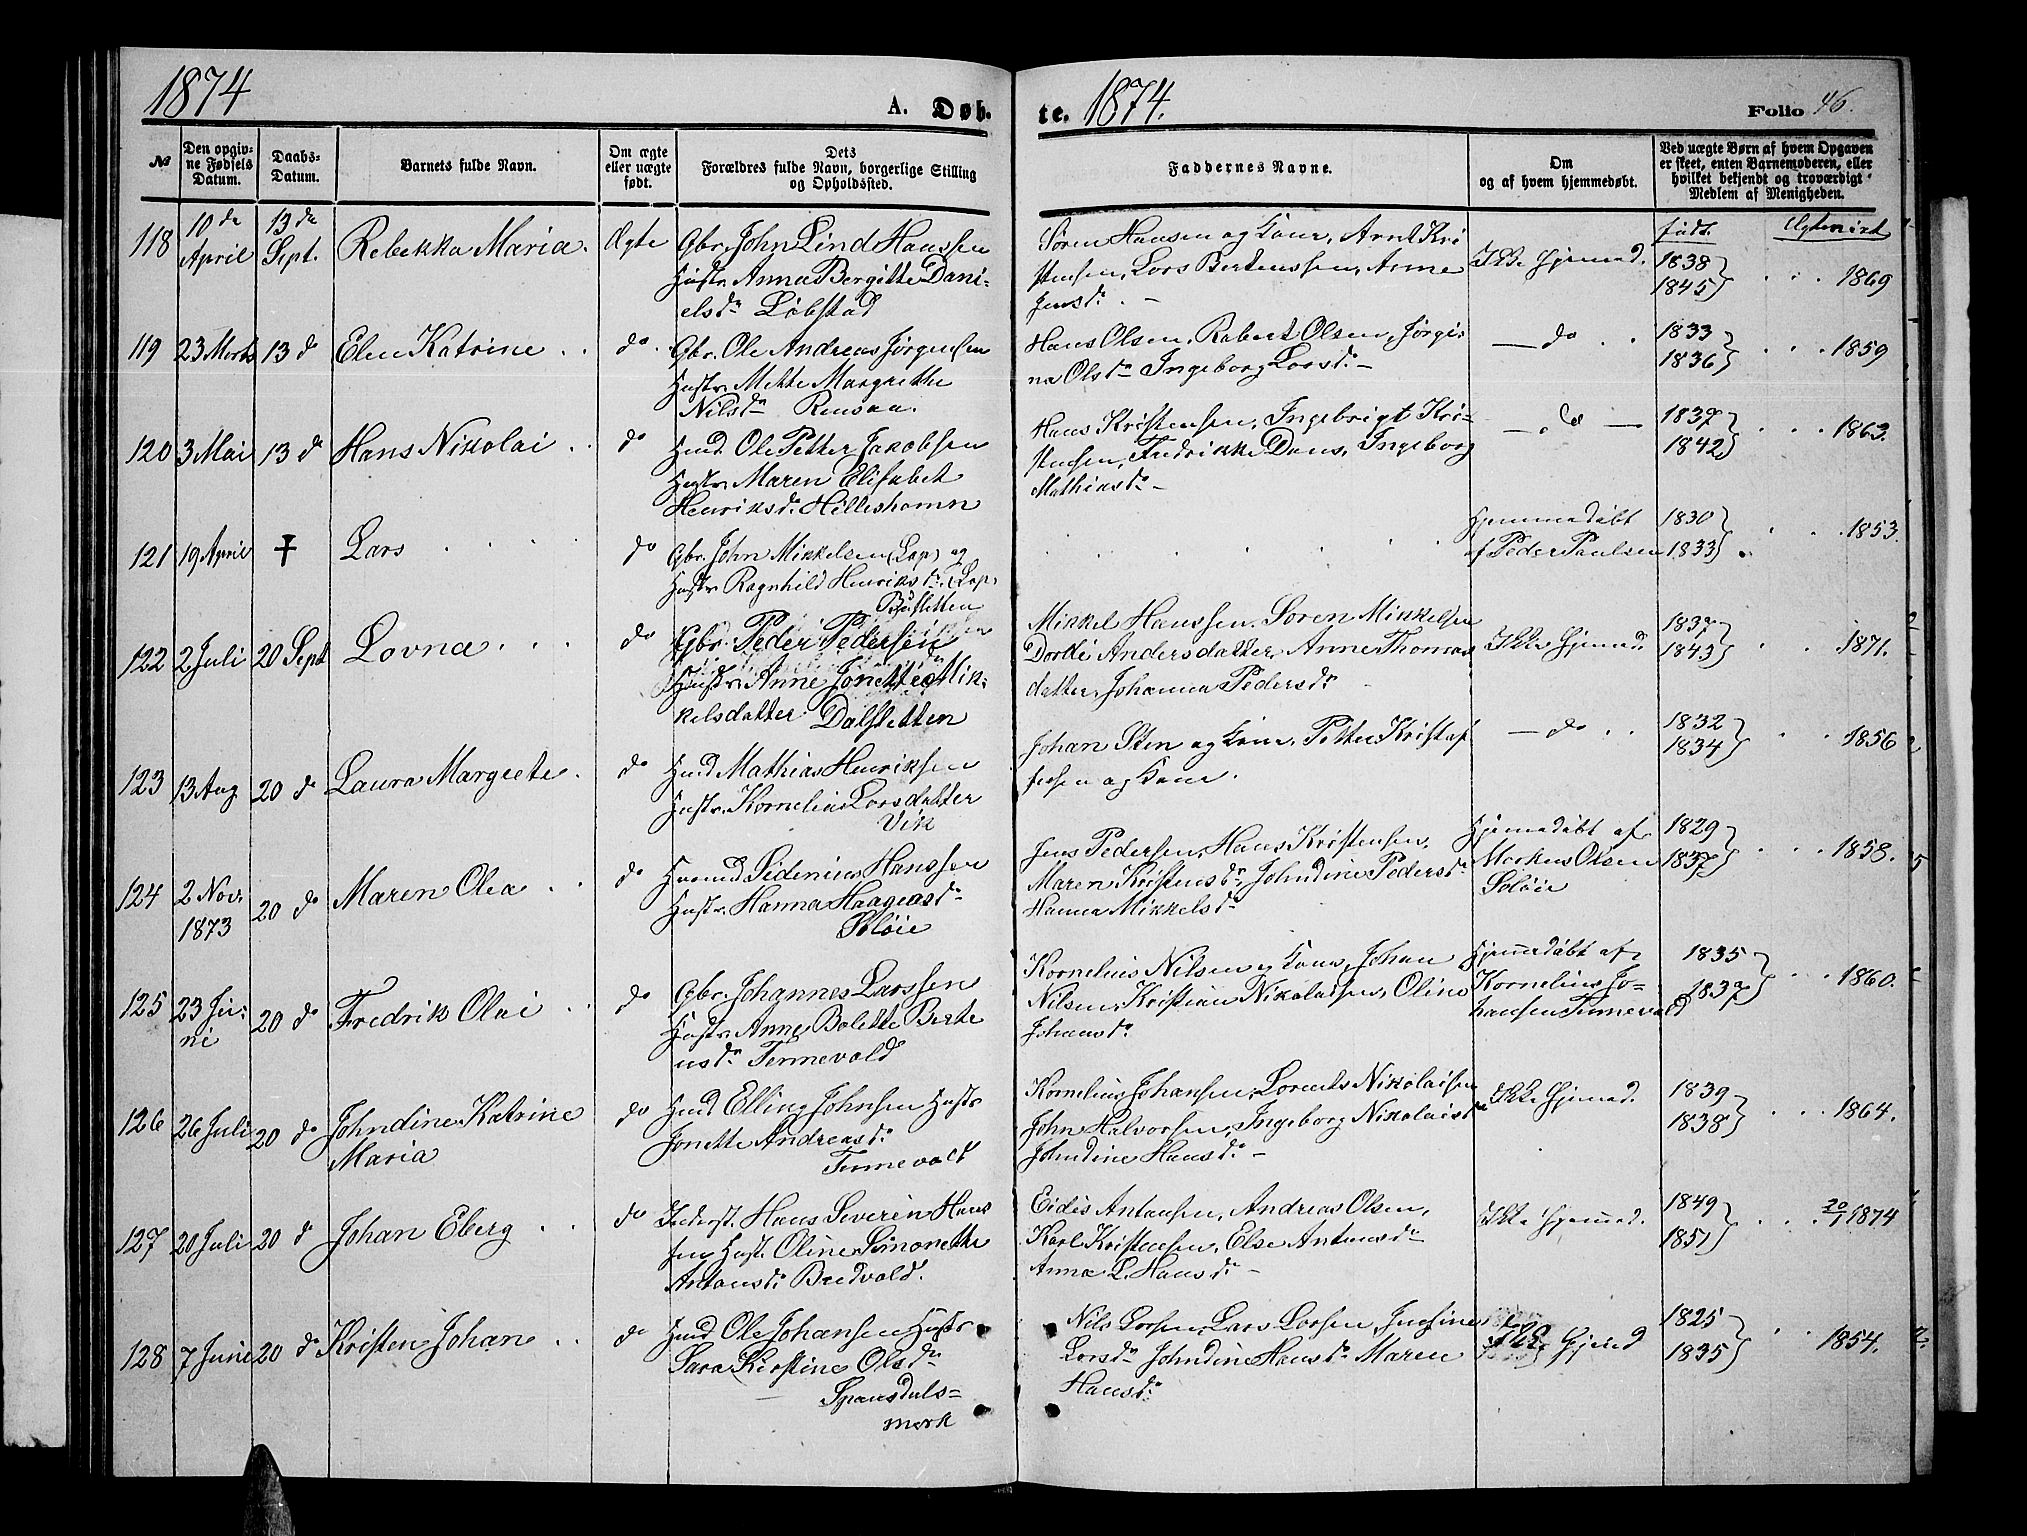 1874
A. Døb-
te. 1874.
Folio 46.
№
Den opgiv-
ne Fødsels
Datum.
Daabs-
Datum.
Barnets fulde Navn.
Om ægte
eller uægte
født.
Dets
Forældres fulde Navn, borgerlige Stilling
og Opholdssted.
Faddernes Navne.
Om
og af hvem hjemmedøbt.
Ved uægte Børn af hvem Opgaven
er skeet, enten Barnemoderen, eller
hvilket bekjendt og troværdigt
Medlem af Menigheden.
født.
118
10de
April
13de
Sept.
Rebekka Maria.
Ægte
Gbr. John Lind Hanssen
Hustr. Anna Bergitte Dani-
elsdr Løbstad
Søren Hansen og Kone, Arnt Kri
stensen, Lars Bertenssen, Anne
Jensdr. –
Ikke Hjemmed.
1838
1845
1869
119
23 Marts
13 d
Elen Katrine
do
Gbr. Ole Andreas Jørgensen
Hustr. Mette Margrethe
Nilsdr Rensaa.
Hans Olsen, Robert Olsen, Jørgi-
na Olsdr Ingeborg Larsdr –
– do
1833
1836
1859
120
3 Mai
13 d
Hans Nikolai
do
Hmd Ole Petter Jakobsen
Hustr. Maren Elisabet
Henriksdr. Hilleshamn
Hans Kristensen, Ingebrigt Kri-
stensen, Fredrikke Dans, Ingeborg
Mathiasdr –
– do –
1837
1842
1863.
121
19 April
†
Lars
do
Gbr. John Mikkelsen (Lap) og
Hustr. Ragnhild Henriksdr. (Lap)
Hjemmedøbt
af Peder Paulsen
1830
1833
1853.
122
2 Juli
20 Sept
Lovna
do
Gbr. Peder Pedersen
Hustr. Anne Jonette Mik-
kelsdatter Dalsletten
Mikkel Hanssen. Søren Mikkelsen
Dordi Andersdatter, Anne Thomas
datter, Johanna Pedersdr
Ikke Hjemmed
1837
1843
1871.
123
13 Aug
20 do
Laura Margrete.
do
Hmd Mathias Henriksen
Hustr. Kornelia Larsdatter
Vik
Johan Sten og Kone, Petter Kristof
fersen og Kone.
– do
1832
1834
1856
124
2 Nov.
1873
20 do
Maren Olea
do
Hmd Sidenius Hanssen
Hustr. Hanna Haagensdr
Soløie
Jens Pedersen, Hans Kristensen,
Maren Kristensdr, Johndine Pedersdr
Hanna Mikkelsdr
Hjemmedøbt af
Markus Olsen
Soløie
1829
1837
1858.
125
23 Ju-
ni
20 do
Fredrik Olai
do
Gbr. Johannes Larssen
Hustr. Anne Bolette Berte
usdr Tennevold
Kornelius Nilsen og Kone, Johan
Nilsen, Kristian Nikolaisen, Oline
Johansdr
Hjemmedøbt af
Kornelius Jo-
hansen Tennevold
1835
1837
1860.
126
26 Juli
20 do
Johndine Katrine
Maria
do
Hmd Elling Johnsen Hustr
Jonette Andreasdr
Tennevold
Kornelius Johansen, Lorents Nikolaisen
John Halvorsen, Ingeborg Nikolaisdr
Johndine Hansdr –
Ikke Hjemmed.
1839
1838
1864.
127
20 Juli
20 d
Johan Eberg
do
Inderst. Hans Severin Hans
sen Hust. Oline Simonette
Antonsdr Bredvold.
Eidis Antonsen, Andreas Olsen,
Karl Kristensen, Else Antonsdr
Anna L. Hansdr –
Ikke Hjemmed.
1849
1851
20/1 1874
128
7 Juni
20 do
Kristen Johan
do
Hmd Ole Johansen Hustr
Sara Kirstine Olsdr
Spansdals-
mark
Nils Larsen, Lars Larsen, Jensine
Larsdr Johndine Hansdr Maren
Hansdr
Ikke Hjemd
1825
1835
1854.